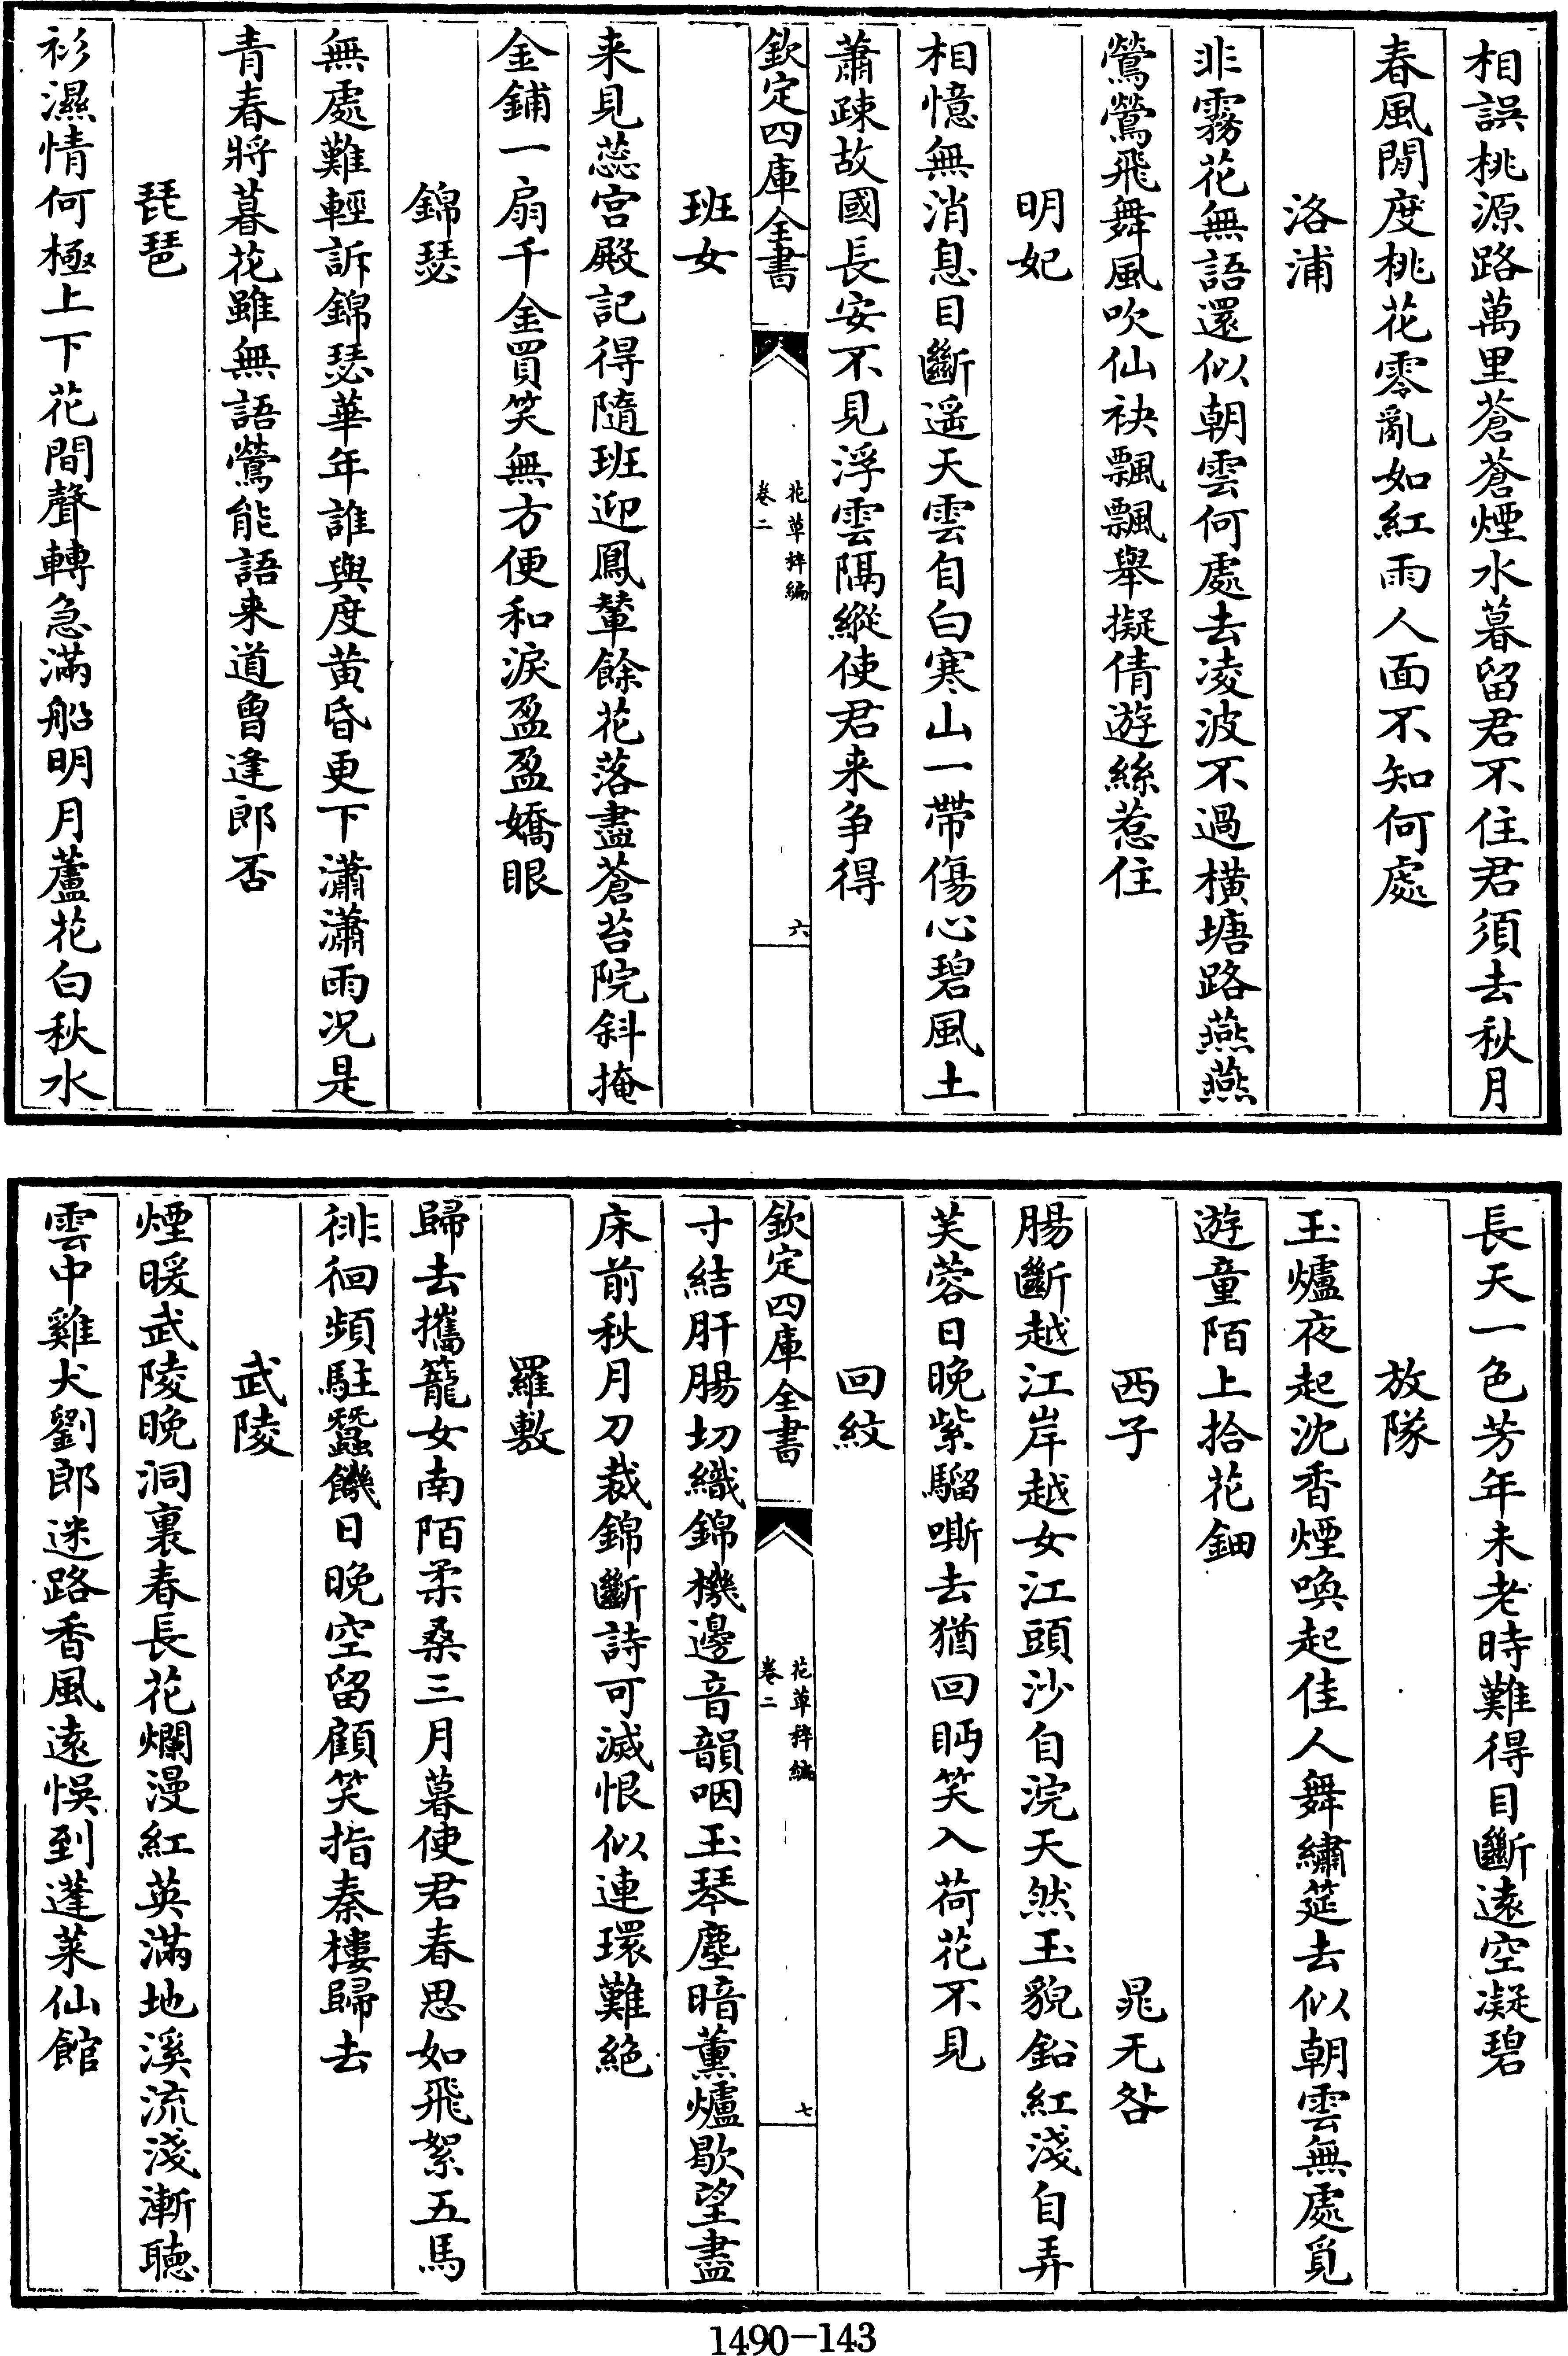 相誤桃源路萬里蒼蒼煙水暮留君不住君須去秋月
春風閒度桃花零亂如紅雨人面不知何處
洛浦
非霧花無語還似朝雲何處去凌波不過橫塘路燕燕
鶯鶯飛舞風吹仙袂飄飄舉擬倩遊絲惹住
明妃
相憶無消息目斷遥天雲自白寒山一帶傷心碧風土
蕭疎故國長安不見浮雲隔縱使君来争得
欽定四庫全書
花草稡編
卷二
六
班女
来見蕊宮殿記得隨班迎鳳輦餘花落盡蒼苔院斜掩
金鋪一扇千金買笑無方便和淚盈盈嬌眼
錦瑟
無處難輕訴錦瑟華年誰與度黄昏更下瀟瀟雨况是
青春將暮花雖無語鶯能語来道曾逢郎否
琵琶
衫濕情何極上下花間聲轉急滿船明月蘆花白秋水
長天一色芳年未老時難得目斷遠空凝碧
放隊
玉爐夜起沈香煙喚起佳人舞繡筵去似朝雲無處覓
遊童陌上拾花鈿
西子 晁无咎
腸斷越江岸越女江頭沙自浣天然玉貌鉛紅淺自弄
芙蓉日晚紫騮嘶去猶回眄笑入荷花不見
回紋
欽定四庫全書
花草稡編
卷二
七
寸結肝腸切織錦機邊音韻咽玉琴塵暗薰爐歇望盡
床前秋月刀裁錦斷詩可滅恨似連環難絶
羅敷
歸去攜籠女南陌柔桑三月暮使君春思如飛絮五馬
徘徊頻駐蠶饑日晚空留顧笑指秦樓歸去
武陵
煙暖武陵晚洞裏春長花爛漫紅英滿地溪流淺漸聴
雲中雞犬劉郎迷路香風遠悞到蓬莱仙館
1490-143